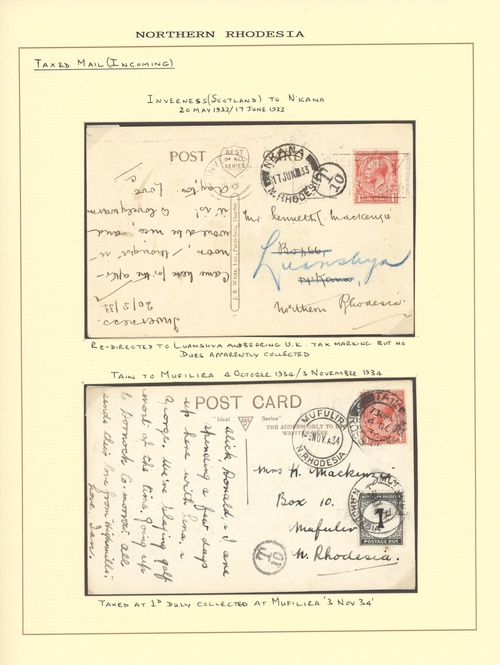 NORTHERN RHODESIA
TAXED MAIL (INCOMING)
INVERNESS (SCOTLAND) TO N'KANA
20 MAY 1933/17 JUNE 1933
POST CARD
BEST
OF ALL
SERIES
NKANA
17 JUN 33
N. RHODESIA
T
10
Inverness.
20/5/33.
Came here for the after
noon, thought it
would be nice and
it is! a lovely warm
day, too Love
J. B. White, Ltd.
Mr Kenneth J Mackenzie
Box 66,
N'Kana,
Luanshya
Northern Rhodesia.
RE-DIRECTED TO LUANSHYA AND BEARING U.K. TAX MARKING BUT NO
DUES APPARENTLY COLLECTED
TAIN TO MUFILIRA 4 OCTOBER 1934/3 NOVEMBER 1934
POST CARD
"Ideal" Series
THE ADDRESS ONLY TO BE
WRITTEN HERE
MUFULIRA
3 NOV 34
N. RHODESIA
TAIN
Alick, Donald, & I are
spending a few days
up here with Lina, &
George. We're playing golf
most of the time. Going up
to Dornoch to-morrow. All
sends their love from
Love Ian.
Mrs K. Mackenzie
Box 10.
Mufulira
N. Rhodesia.
10
T
NORTHERN RHODESIA
1d
POSTAGE DUE
TAXED AT 1D DULY COLLECTED AT MUFILIRA '3 NOV 34'